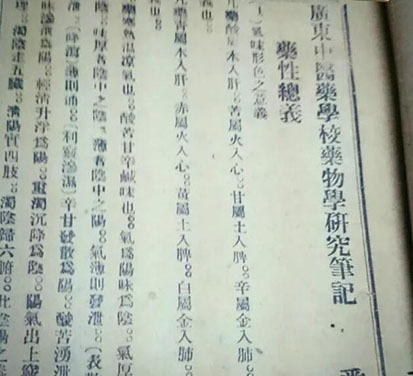 廣東中醫藥學校藥物學研究筆記
藥性總義
(1)氣味形色之意義
凡藥酸屬木入肝○○苦屬火入心○○甘屬土入脾○○辛屬金入肺○○
義也○○
凡藥青屬木入肝○○赤屬火入心○○黃屬土入脾○○白屬金入肺○○
義也○○
藥寒熱温凉氣也○○酸苦甘辛鹹味也○○氣爲陽味爲陰○○氣厚
陰○○味厚者陰中之陰○○薄者陰中之陽○○氣薄則發泄○○(表散
(降瀉)薄則通○○(利竅滲濕)辛甘發散爲陽○○酸苦湧泄
味滲泄爲陽○○輕清升浮爲陽○○重濁沉降爲陰○○陽氣出上竅
理○○濁陰走五臟○○清陽實四肢○○濁陰歸六腑○○此陰陽之